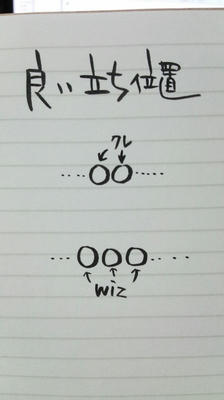 良い立ち位置
クレ
wiz